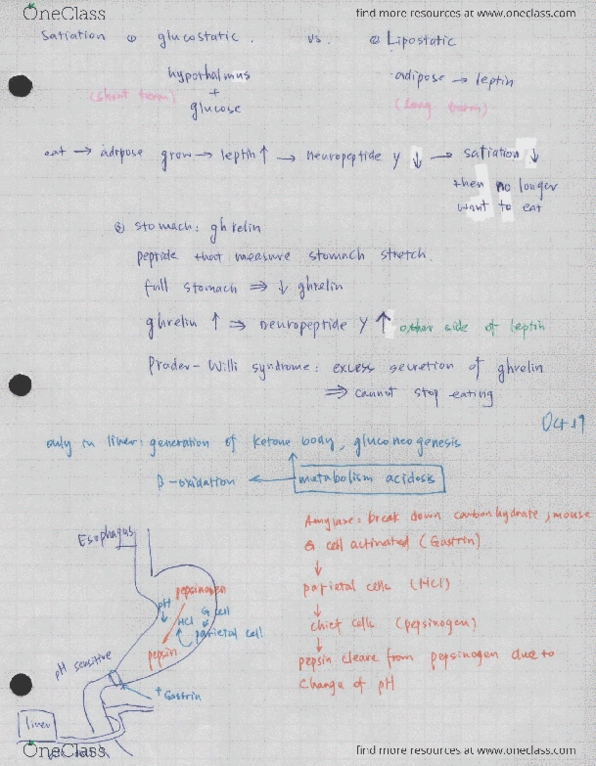 OneClass
find more resources at www.oneclass.com
Satiation ① glucostatic. vs. ② Lipostatic
hypothalmus
+
glucose
adipose → leptin
(short term)
(long term)
eat → adipose grow → leptin ↑ → neuropeptide y ↓ → satiation ↓
then no longer
want to eat
③ stomach: ghrelin
peptide that measure stomach stretch.
full stomach ⇒ ↓ ghrelin
ghrelin ↑ ⇒ neuropeptide Y ↑ other side of leptin
Prader-Willi syndrome: excess secretion of ghrelin
⇒ cannot stop eating
Oct 19
only in liver: generation of ketone body, gluconeogenesis
β-oxidation ← metabolism acidosis
Amylase: break down carbonhydrate, mouse
G cell activated (Gastrin)
↓
parietal cells (HCl)
↓
chief cells (pepsinogen)
↓
pepsin cleave from pepsinogen due to
change of pH
Esophagus
pepsinogen
pH ↓
HCl
G cell
parietal cell
pepsin
pH sensitive
+ Gastrin
liver
OneClass
find more resources at www.oneclass.com